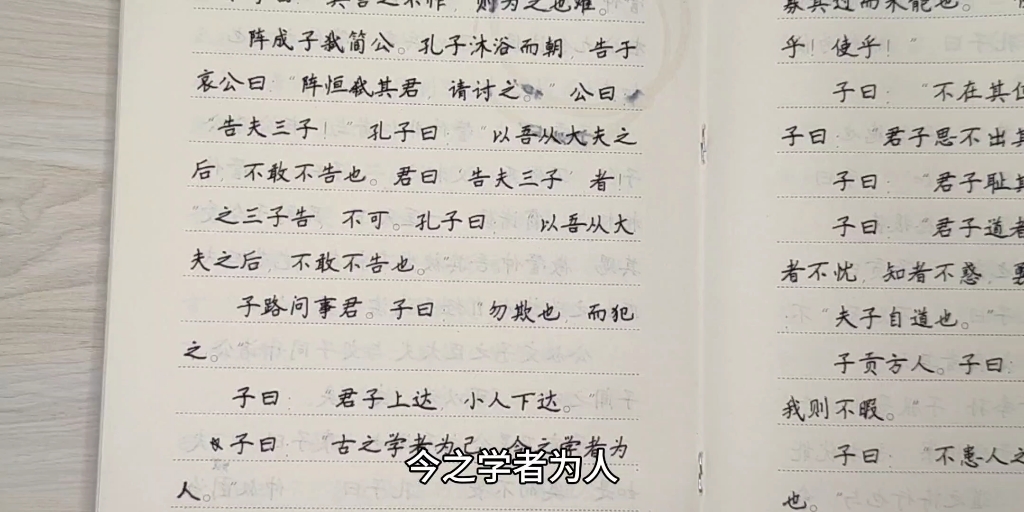 子曰：“其言之不怍，则为之也难。”
陈成子弑简公。孔子沐浴而朝，告于
哀公曰“陈恒弑其君，请讨之。”公曰
“告夫三子！”孔子曰：“以吾从大夫之
后，不敢不告也。君曰‘告夫三子’者！
”之三子告，不可。孔子曰：“以吾从大
夫之后，不敢不告也。”
子路问事君。子曰：“勿欺也，而犯
之。”
子曰：“君子上达，小人下达。”
子曰：“古之学者为己，今之学者为
人。”
寡其过而未能也。”
乎！使乎！”
子曰：“不在其位
子曰：“君子思不出其
子曰：“君子耻其
子曰：“君子道者
者不忧，知者不惑，勇
“夫子自道也。”
子贡方人。子曰：
我则不暇。”
子曰：“不患人之
也。”
今之学者为人